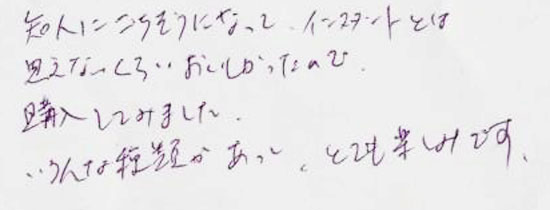 知人にごちそうになって、インスタントとは
思えないくらいおいしかったので
購入してみました。
いろんな種類があって、とても楽しみです。